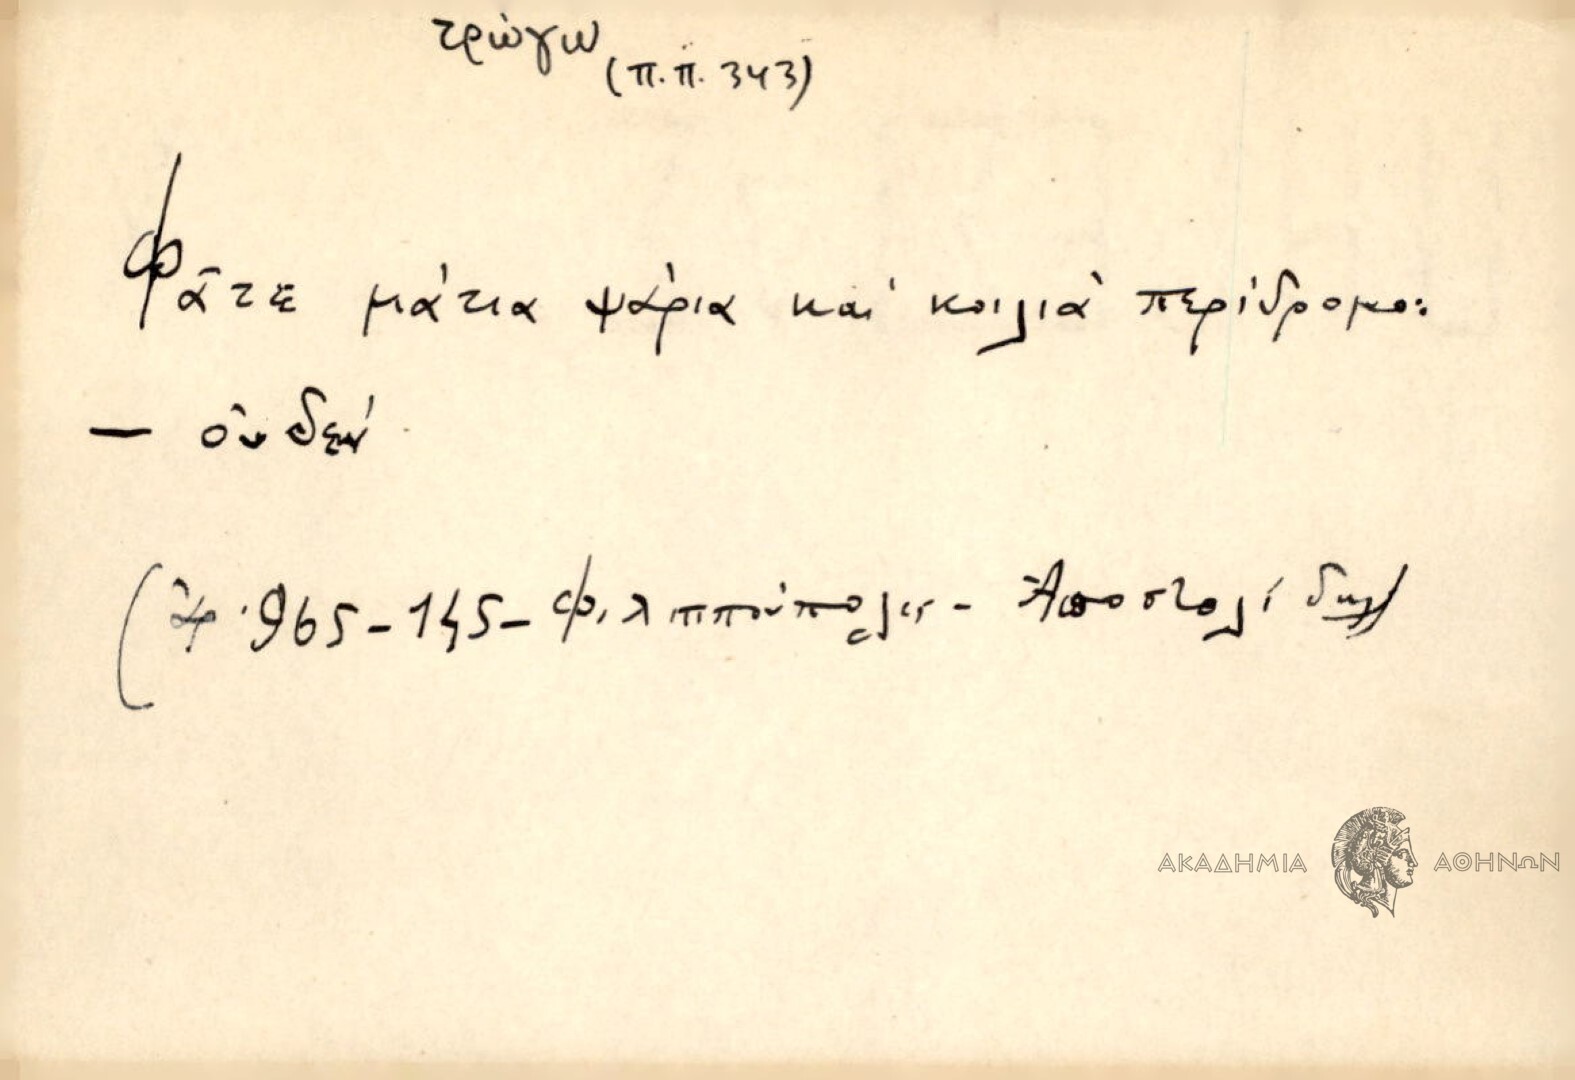 τρώγω
(π.π. 343)
Φᾶτε μάτια ψάρια καὶ κοιλιὰ περίδρομο:
— οὐδέν
(ἀρ. 965-145- Φιλιππούπολις - Ἀποστολίδης)
ΑΚΑΔΗΜΙΑ ΑΘΗΝΩΝ